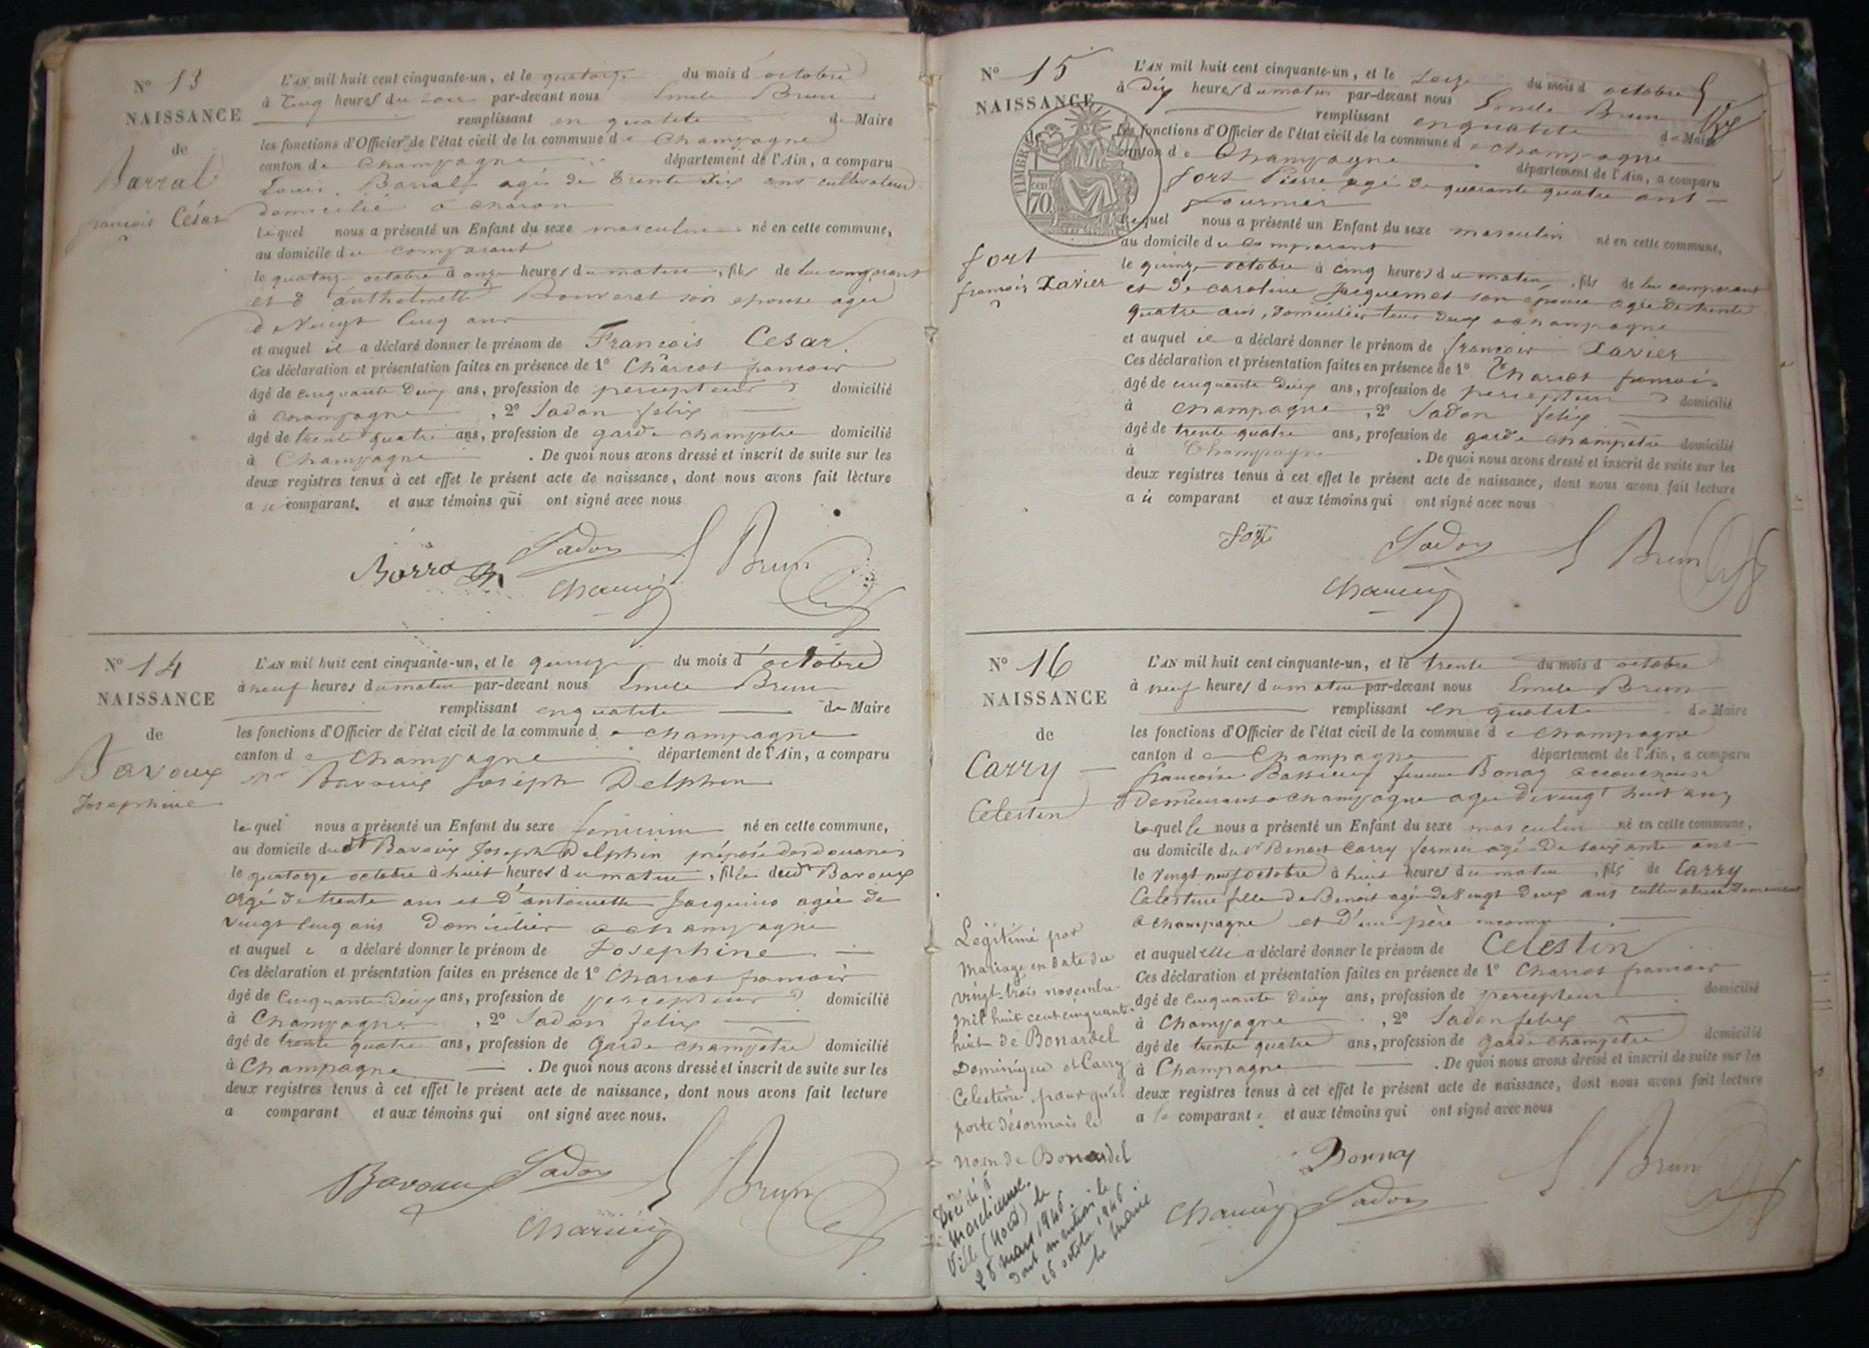 N° 13
NAISSANCE
de
Barral
françois César
L'AN mil huit cent cinquante-un, et le quatorze du mois d'octobre
à cinq heures du soir par-devant nous Emile Brun
remplissant en qualité de Maire
les fonctions d'Officier de l'état civil de la commune de Champagne
canton de Champagne département de l'Ain, a comparu
Louis Barral agé de trente dix ans cultivateur
domicilié à charon
lequel nous a présenté un Enfant du sexe masculin né en cette commune,
au domicile du comparant
le quatorze octobre à onze heures du matin, fils de lui comparant
et d'anthelmette Bouverat son epouse agée
de Vingt cinq ans
et auquel il a déclaré donner le prénom de François César.
Ces déclaration et présentation faites en présence de 1° Charcot francois
âgé de cinquante deux ans, profession de percepteur domicilié
à champagne, 2° Sadon felix
âgé de trente quatre ans, profession de garde champêtre domicilié
à Champagne. De quoi nous avons dressé et inscrit de suite sur les
deux registres tenus à cet effet le présent acte de naissance, dont nous avons fait lecture
a comparant, et aux témoins qui ont signé avec nous
Barral Sadon E Brun
N° 14
NAISSANCE
de
Bavoux
Josephine
L'AN mil huit cent cinquante-un, et le quinze du mois d'octobre
à neuf heures du matin par-devant nous Emile Brun
remplissant en qualité de Maire
les fonctions d'Officier de l'état civil de la commune de champagne
canton de Champagne département de l'Ain, a comparu
Bavoux Joseph Delphin
lequel nous a présenté un Enfant du sexe feminin né en cette commune,
au domicile dudt Bavoux Joseph Delphin préposé des douanes
le quatorze octobre à huit heures du matin, fille dudt Bavoux
agé de trente ans et d'antoinette Jacquino agée de
vingt cinq ans domiciliés a champagne
et auquel a déclaré donner le prénom de Josephine
Ces déclaration et présentation faites en présence de 1° Charcot francois
âgé de cinquante deux ans, profession de percepteur domicilié
à Champagne, 2° Sadon felix
âgé de trente quatre ans, profession de garde champêtre domicilié
à Champagne. De quoi nous avons dressé et inscrit de suite sur les
deux registres tenus à cet effet le présent acte de naissance, dont nous avons fait lecture
a comparant et aux témoins qui ont signé avec nous.
Bavoux Sadon E Brun
N° 15
NAISSANCE
TIMBRE
70
fort
francois Xavier
L'AN mil huit cent cinquante-un, et le seize du mois d octobre
à dix heures du matin par-devant nous Emile Brun
remplissant en qualité de Maire
les fonctions d'Officier de l'état civil de la commune de champagne
canton de Champagne département de l'Ain, a comparu
fort Pierre agé de quarante quatre ans
lequel nous a présenté un Enfant du sexe masculin né en cette commune,
au domicile du comparant
le quinze octobre à cinq heures du matin, fils de lui comparant
et de caroline Jacquemet son epouse agée de trente
quatre ans, domiciliés tous deux a champagne
et auquel il a déclaré donner le prénom de francois Xavier
Ces déclaration et présentation faites en présence de 1° Charcot francois
âgé de cinquante deux ans, profession de percepteur domicilié
à champagne, 2° Sadon felix
âgé de trente quatre ans, profession de garde champêtre domicilié
à Champagne. De quoi nous avons dressé et inscrit de suite sur les
deux registres tenus à cet effet le présent acte de naissance, dont nous avons fait lecture
a comparant et aux témoins qui ont signé avec nous
fort Sadon E Brun
N° 16
NAISSANCE
de
Carry
Celestin
L'AN mil huit cent cinquante-un, et le trente du mois d octobre
à neuf heures du matin par-devant nous Emile Brun
remplissant en qualité de Maire
les fonctions d'Officier de l'état civil de la commune de champagne
canton de Champagne département de l'Ain, a comparu
francoise femme Bonay accoucheuse
demeurant a champagne agée de vingt huit ans
laquelle nous a présenté un Enfant du sexe masculin né en cette commune,
au domicile du sr Benoit Carry fermier agé de soixante ans
le vingt neuf octobre à huit heures du matin, fils de Carry
Celestine fille de Benoit agé de Vingt deux ans cultivatrice demeurant
a champagne et d'un père inconnu
et auquel elle a déclaré donner le prénom de Celestin
Ces déclaration et présentation faites en présence de 1° Charcot francois
âgé de cinquante deux ans, profession de percepteur domicilié
à Champagne, 2° Sadon felix
âgé de trente quatre ans, profession de garde champêtre domicilié
à Champagne. De quoi nous avons dressé et inscrit de suite sur les
deux registres tenus à cet effet le présent acte de naissance, dont nous avons fait lecture
a la comparante et aux témoins qui ont signé avec nous
Bonnay E Brun
Sadon
Légitimé par
mariage en date du
vingt-trois novembre
mil huit cent cinquante-
huit de Bonardel
Dominique et Carry
Célestine pour qu'il
porte désormais le
nom de Bonardel
Décédé à
Marchienne
Ville (Nord) le
28 mars 1946.
Dont mention le
26 octobre 1946.
le Maire